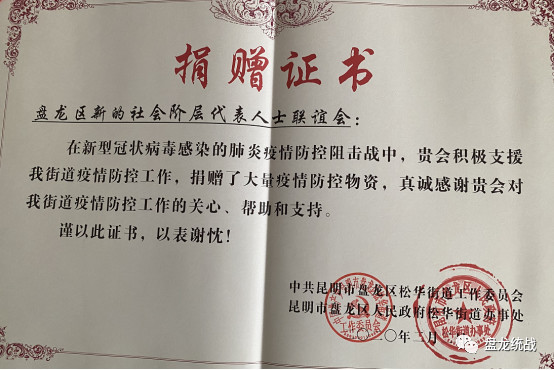 捐赠证书
盘龙区新的社会阶层代表人士联谊会：
在新型冠状病毒感染的肺炎疫情防控阻击战中，贵会积极支援
我街道疫情防控工作，捐赠了大量疫情防控物资，真诚感谢贵会对
我街道疫情防控工作的关心、帮助和支持。
谨以此证书，以表谢忱！
中共昆明市盘龙区松华街道工作委员会
昆明市盘龙区人民政府松华街道办事处
二〇二〇年二月
工作委员会
松华街道办事处
盘龙统战